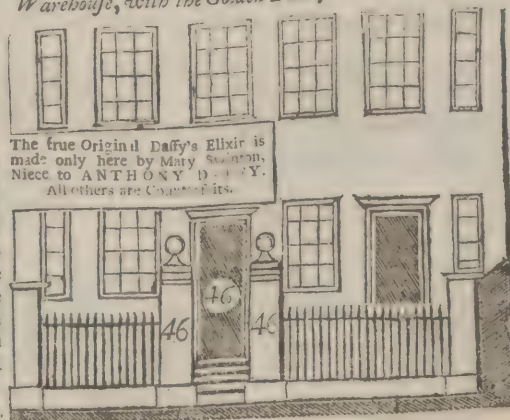 Warehouſe, with the Golden
The true Original Daffy's Elixir is
made only here by Mary
Niece to ANTHONY
All others are
46
46 46